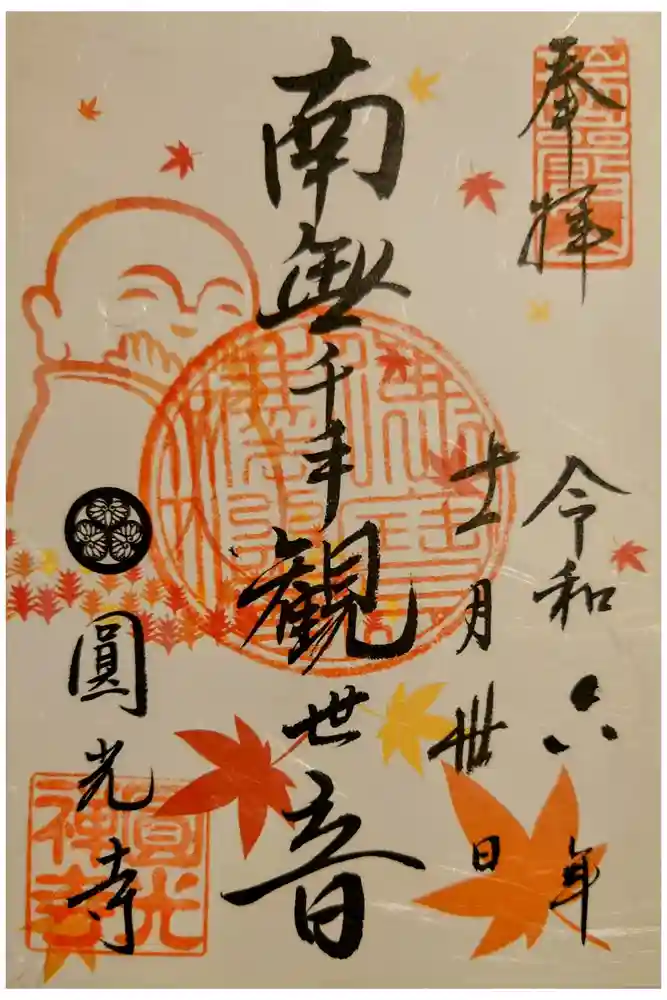 奉拝
令和六年
十一月卅日
南無千手観世音
圓光寺
圓光禪寺